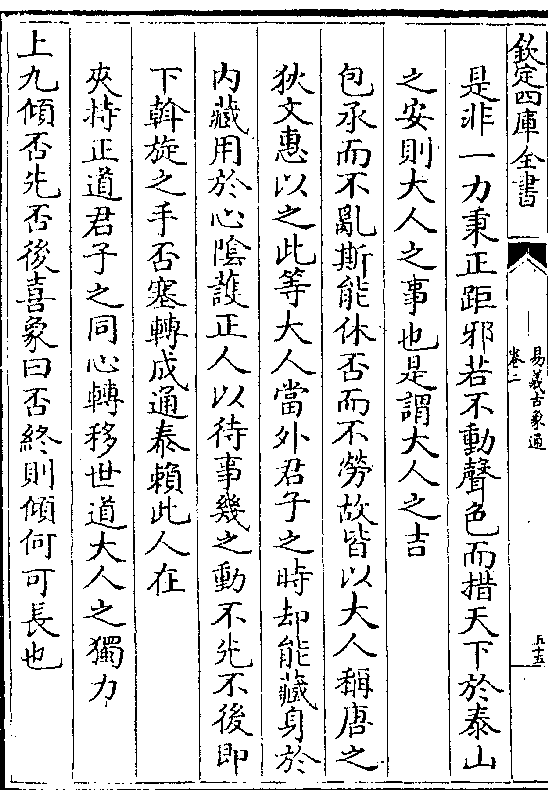 欽定四庫全書
易義古象通
卷二
五十五
是非一力秉正距邪若不動聲色而措天下於泰山
之安則大人之事也是謂大人之吉
包承而不亂斯能休否而不勞故皆以大人稱唐之
狄文惠以之此等大人當外君子之時却能藏身於
內藏用於心陰䕶正人以待事幾之動不先不後即
下斡旋之手否塞轉成通泰賴此人在
夾持正道君子之同心轉移世道大人之獨力
上九傾否先否後喜象曰否終則傾何可長也